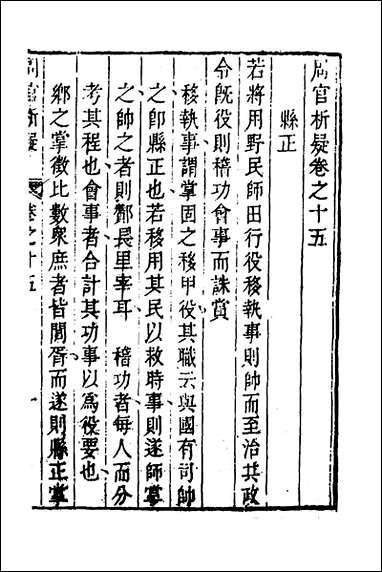 周官析疑卷之十五
縣正
若將用野民師田行役移執事則帥而至治其政
令既役則稽功會事而誅賞
移執事謂掌固之移甲役其職云與國有司帥
之卽縣正也若移用其民以救時事則遂師掌
之帥之者則酇長里宰耳 稽功者每人而分
考其程也會事者合計其功事以為役要也
鄉之掌徵比數衆庶者皆閭胥而遂則縣正掌
周官析疑 卷之十五 一